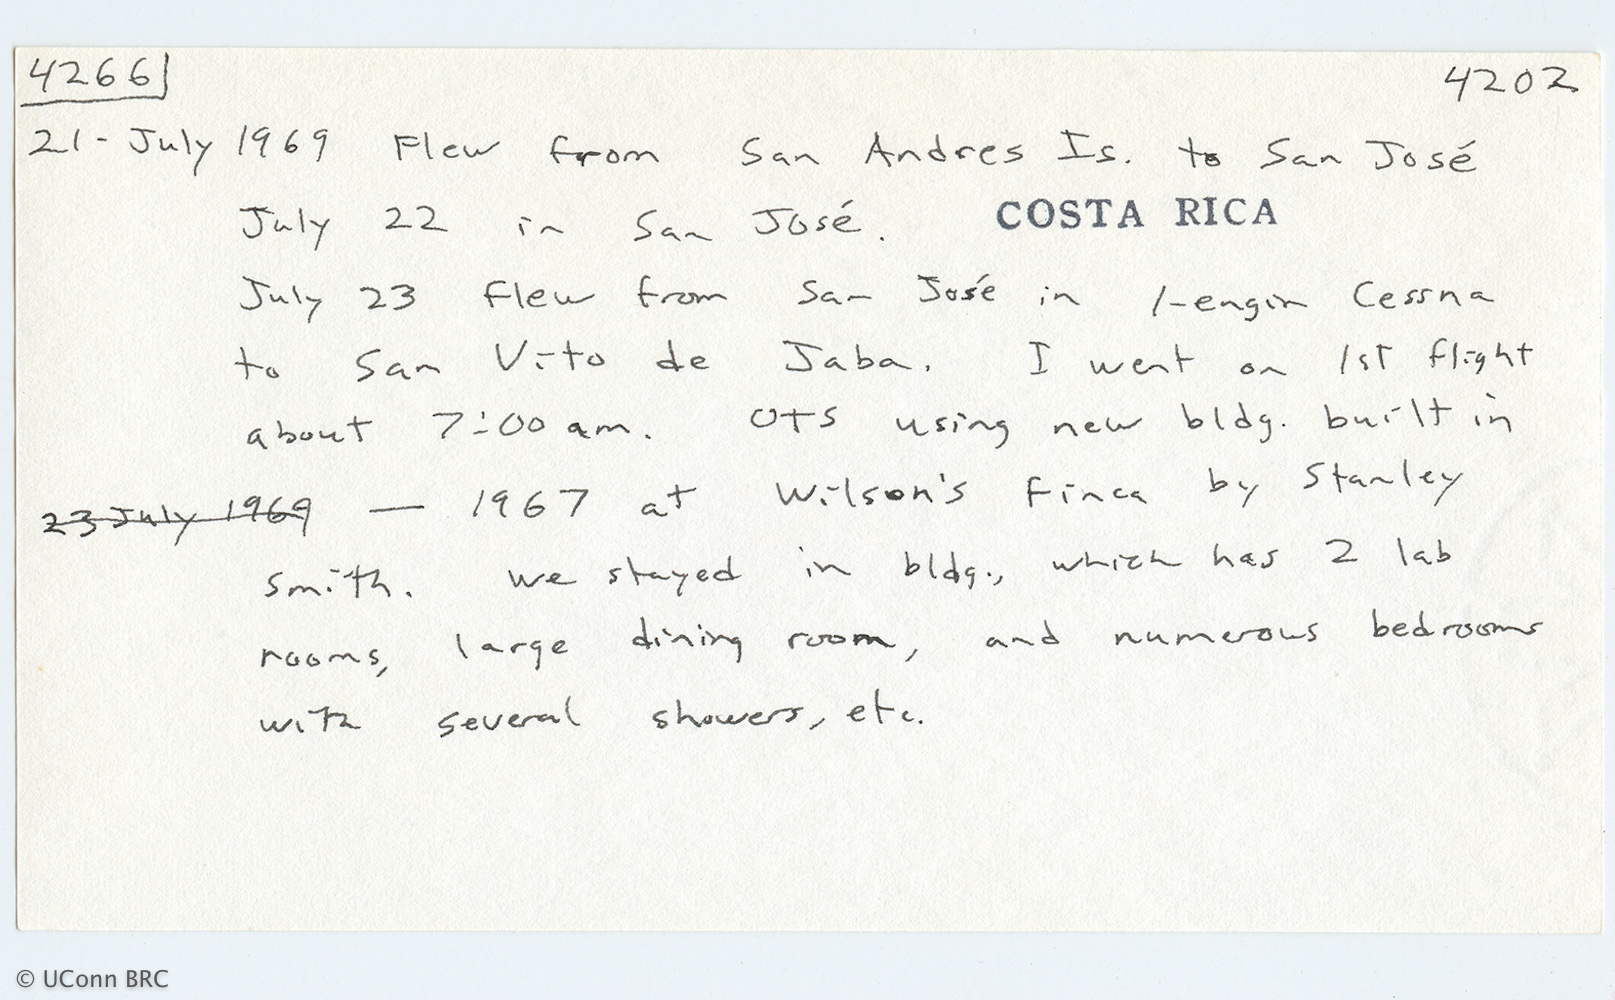 4266 4202
21-July 1969 Flew from San Andres Is. to San José
July 22 in San José. COSTA RICA
July 23 flew from San José in 1-engin Cessna
to San Vito de Jaba. I went on 1st flight
about 7:00 am. OTS using new bldg. built in
23 July 1969 — 1967 at Wilson's Finca by Stanley
Smith. We stayed in bldg., which has 2 lab
rooms, large dining room, and numerous bedrooms
with several showers, etc.
© UConn BRC